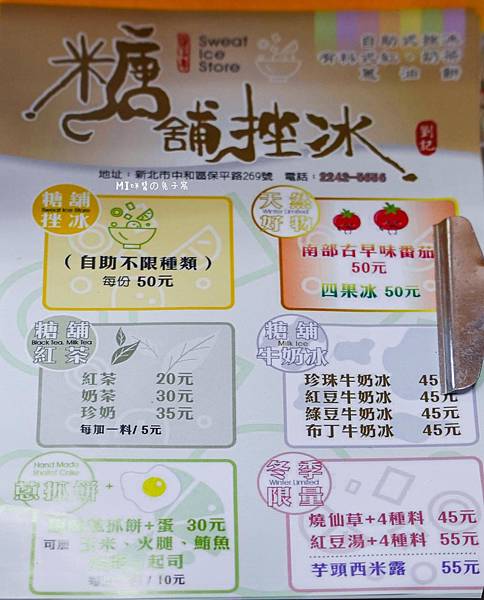 Sweat
Ice
Store
自助式挫冰
蔥油餅
糖舖挫冰
劉記
地址：新北市中和區保平路269號 電話：2242-5656
MI咪醬の兔子窩
糖舖
挫冰
Sweat Ice Store
（自助不限種類）
每份 50元
天然
好物
Winter Limited
南部古早味番茄
50元
四果冰 50元
糖舖
Black Tea. Milk Tea
紅茶
紅茶 20元
奶茶 30元
珍奶 35元
每加一料/ 5元
糖舖
Milk Ice
牛奶冰
珍珠牛奶冰 45元
紅豆牛奶冰 45元
綠豆牛奶冰 45元
布丁牛奶冰 45元
Hand Made
蔥抓餅
抓餅+蛋 30元
可加 玉米、火腿、鮪魚
起司
/ 10元
冬季
Winter Limited
限量
燒仙草+4種料 45元
紅豆湯+4種料 55元
芋頭西米露 55元